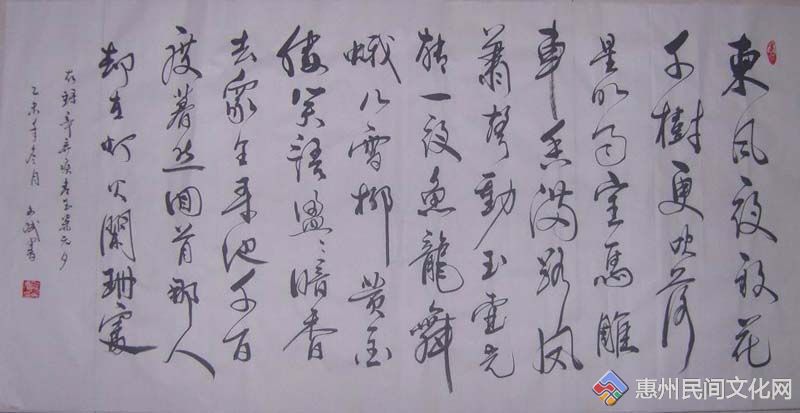 東风夜放花
千樹更吹落
星如雨宝馬雕
車香满路凤
萧聲動玉壶光
转一夜魚龍舞
蛾儿雪柳黄金
缕笑語盈、暗香
去众里寻他千百
度蓦然回首那人
却在灯火闌珊處
右録辛弃疾青玉案元夕
乙未年冬月
惠州民间文化网